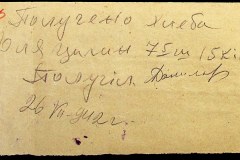 Получено хлеба
для
75 ш 15 кi
Получил
26 VI-942 г.